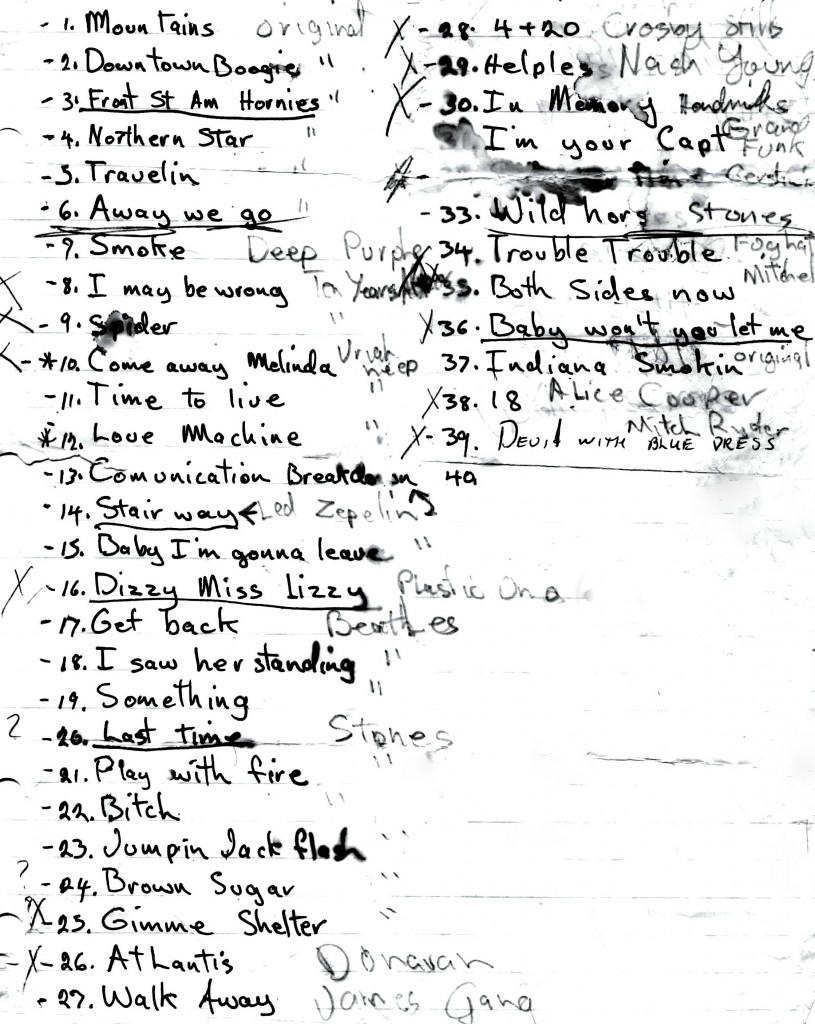 - 1. Mountains original
- 2. Downtown Boogie "
- 3. Front St Am Hornies "
- 4. Northern Star "
- 5. Travelin "
- 6. Away we go "
- 7. Smoke Deep Purple
- 8. I may be wrong Ten Years
X - 9. Spider "
- *10. Come away Melinda Uriah heep
- 11. Time to live "
*12. Love Machine "
- 13. Comunication Breakdown
- 14. Stair way ← Led Zepelin
- 15. Baby I'm gonna leave "
X - 16. Dizzy Miss Lizzy Plastic Ono
- 17. Get back Beatles
- 18. I saw her standing "
- 19. Something "
? - 20. Last time Stones
- 21. Play with fire "
- 22. Bitch "
- 23. Jumpin Jack flash "
? - 24. Brown Sugar "
? X - 25. Gimme Shelter "
- X - 26. Atlantis Donavan
- 27. Walk Away James Gang
X - 28. 4+20 Crosby Stills
X - 29. Helples Nash Young
X - 30. In Memory
I'm your Capt Grand Funk
- 33. Wild hors es Stones
34. Trouble Trouble Foghat
35. Both Sides now Mitchel
X 36. Baby won't you let me
37. Indiana Smokin original
X 38. 18 Alice Cooper
X - 39. Devil with BLUE DRESS Mitch Ryder
40